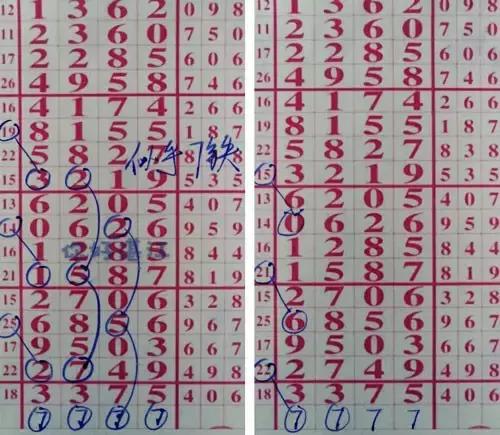 12 1 3 6 2 0 9 8
11 2 3 6 0 7 5 0
7 2 2 8 5 6 0 6
26 4 9 5 8 7 4 6
16 4 1 7 4 2 6 6
19 8 1 5 5 1 8 7
22 5 8 2 8 8
15 3 2 1 9 5 3 5
13 6 2 0 5 4 0 7
14 0 6 2 6 9 5 9
16 1 2 8 5 8 4 4
21 1 5 8 7 8 1 9
15 2 7 0 6 3 2 8
25 6 8 5 6 9 6 7
17 9 5 0 3 6 6 7
22 2 7 4 9 4 9 8
18 3 3 7 5 4 0 6
7 7 7 7
12 1 3 6 2 0 9 8
11 2 3 6 0 7 5 0
7 2 2 8 5 6 0 6
26 4 9 5 8 7 4 6
16 4 1 7 4 2 6 6
19 8 1 5 5 1 8 7
22 5 8 2 7 8 3 8
15 3 2 1 9 5 3 5
13 6 2 0 5 4 0 7
14 0 6 2 6 9 5 9
16 1 2 8 5 8 4 4
21 1 5 8 7 8 1 9
15 2 7 0 6 3 2 8
25 6 8 5 6 9 6 7
17 9 5 0 3 6 6 7
22 2 7 4 9 4 9 8
18 3 3 7 5 4 0 6
7 7 7 7